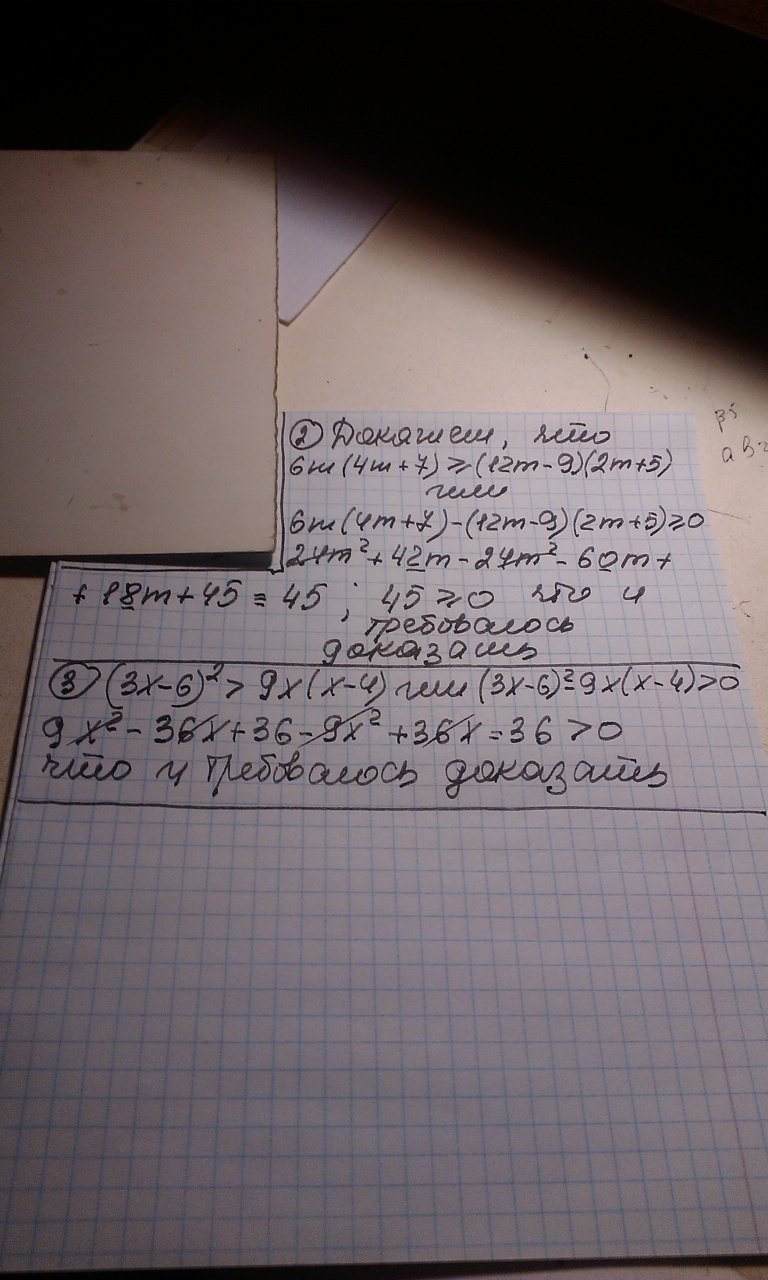 ② Докажем, что
6m(4m+7) ≥ (12m-9)(2m+5)
или
6m(4m+7)-(12m-9)(2m+5) ≥ 0
24m² + 42m - 24m² - 60m +
+ 18m + 45 = 45 ; 45 ≥ 0 что и
требовалось
доказать
③ (3x-6)² > 9x(x-4) или (3x-6)² - 9x(x-4) > 0
9x² - 36x + 36 - 9x² + 36x = 36 > 0
что и требовалось доказать